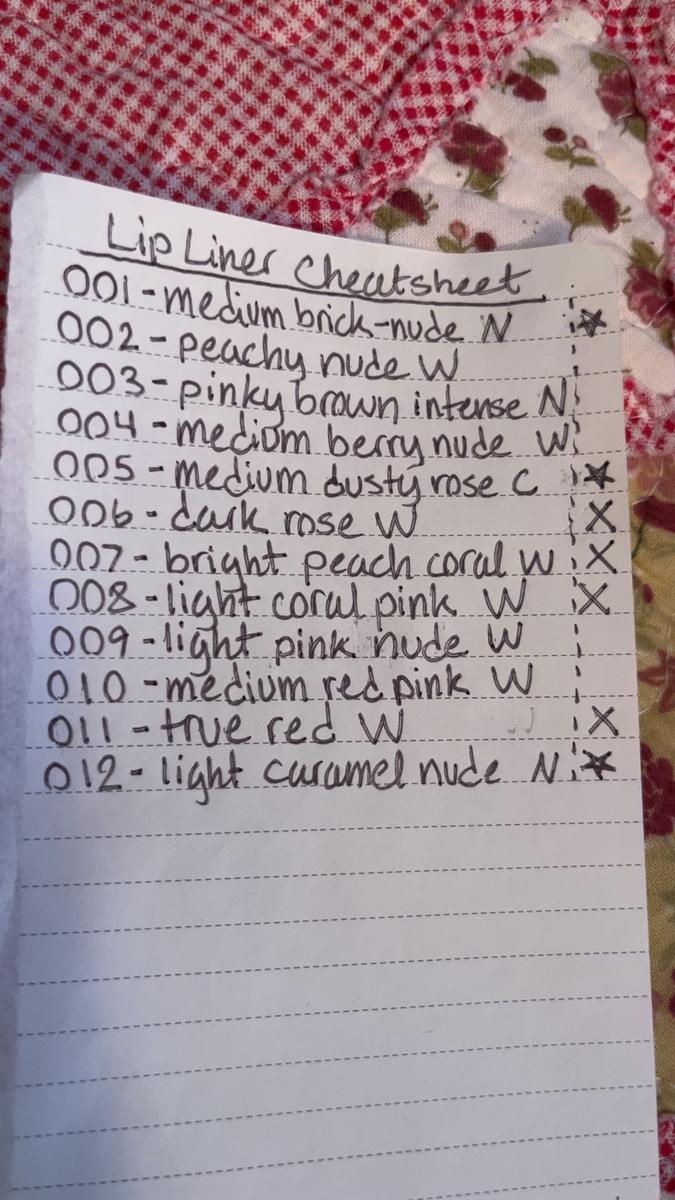 Lip Liner Cheatsheet
001 - medium brick-nude N ★
002 - peachy nude W
003 - pinky brown intense N
004 - medium berry nude W
005 - medium dusty rose C ★
006 - dark rose W X
007 - bright peach coral W X
008 - light coral pink W X
009 - light pink nude W
010 - medium red pink W
011 - true red W X
012 - light caramel nude N ★